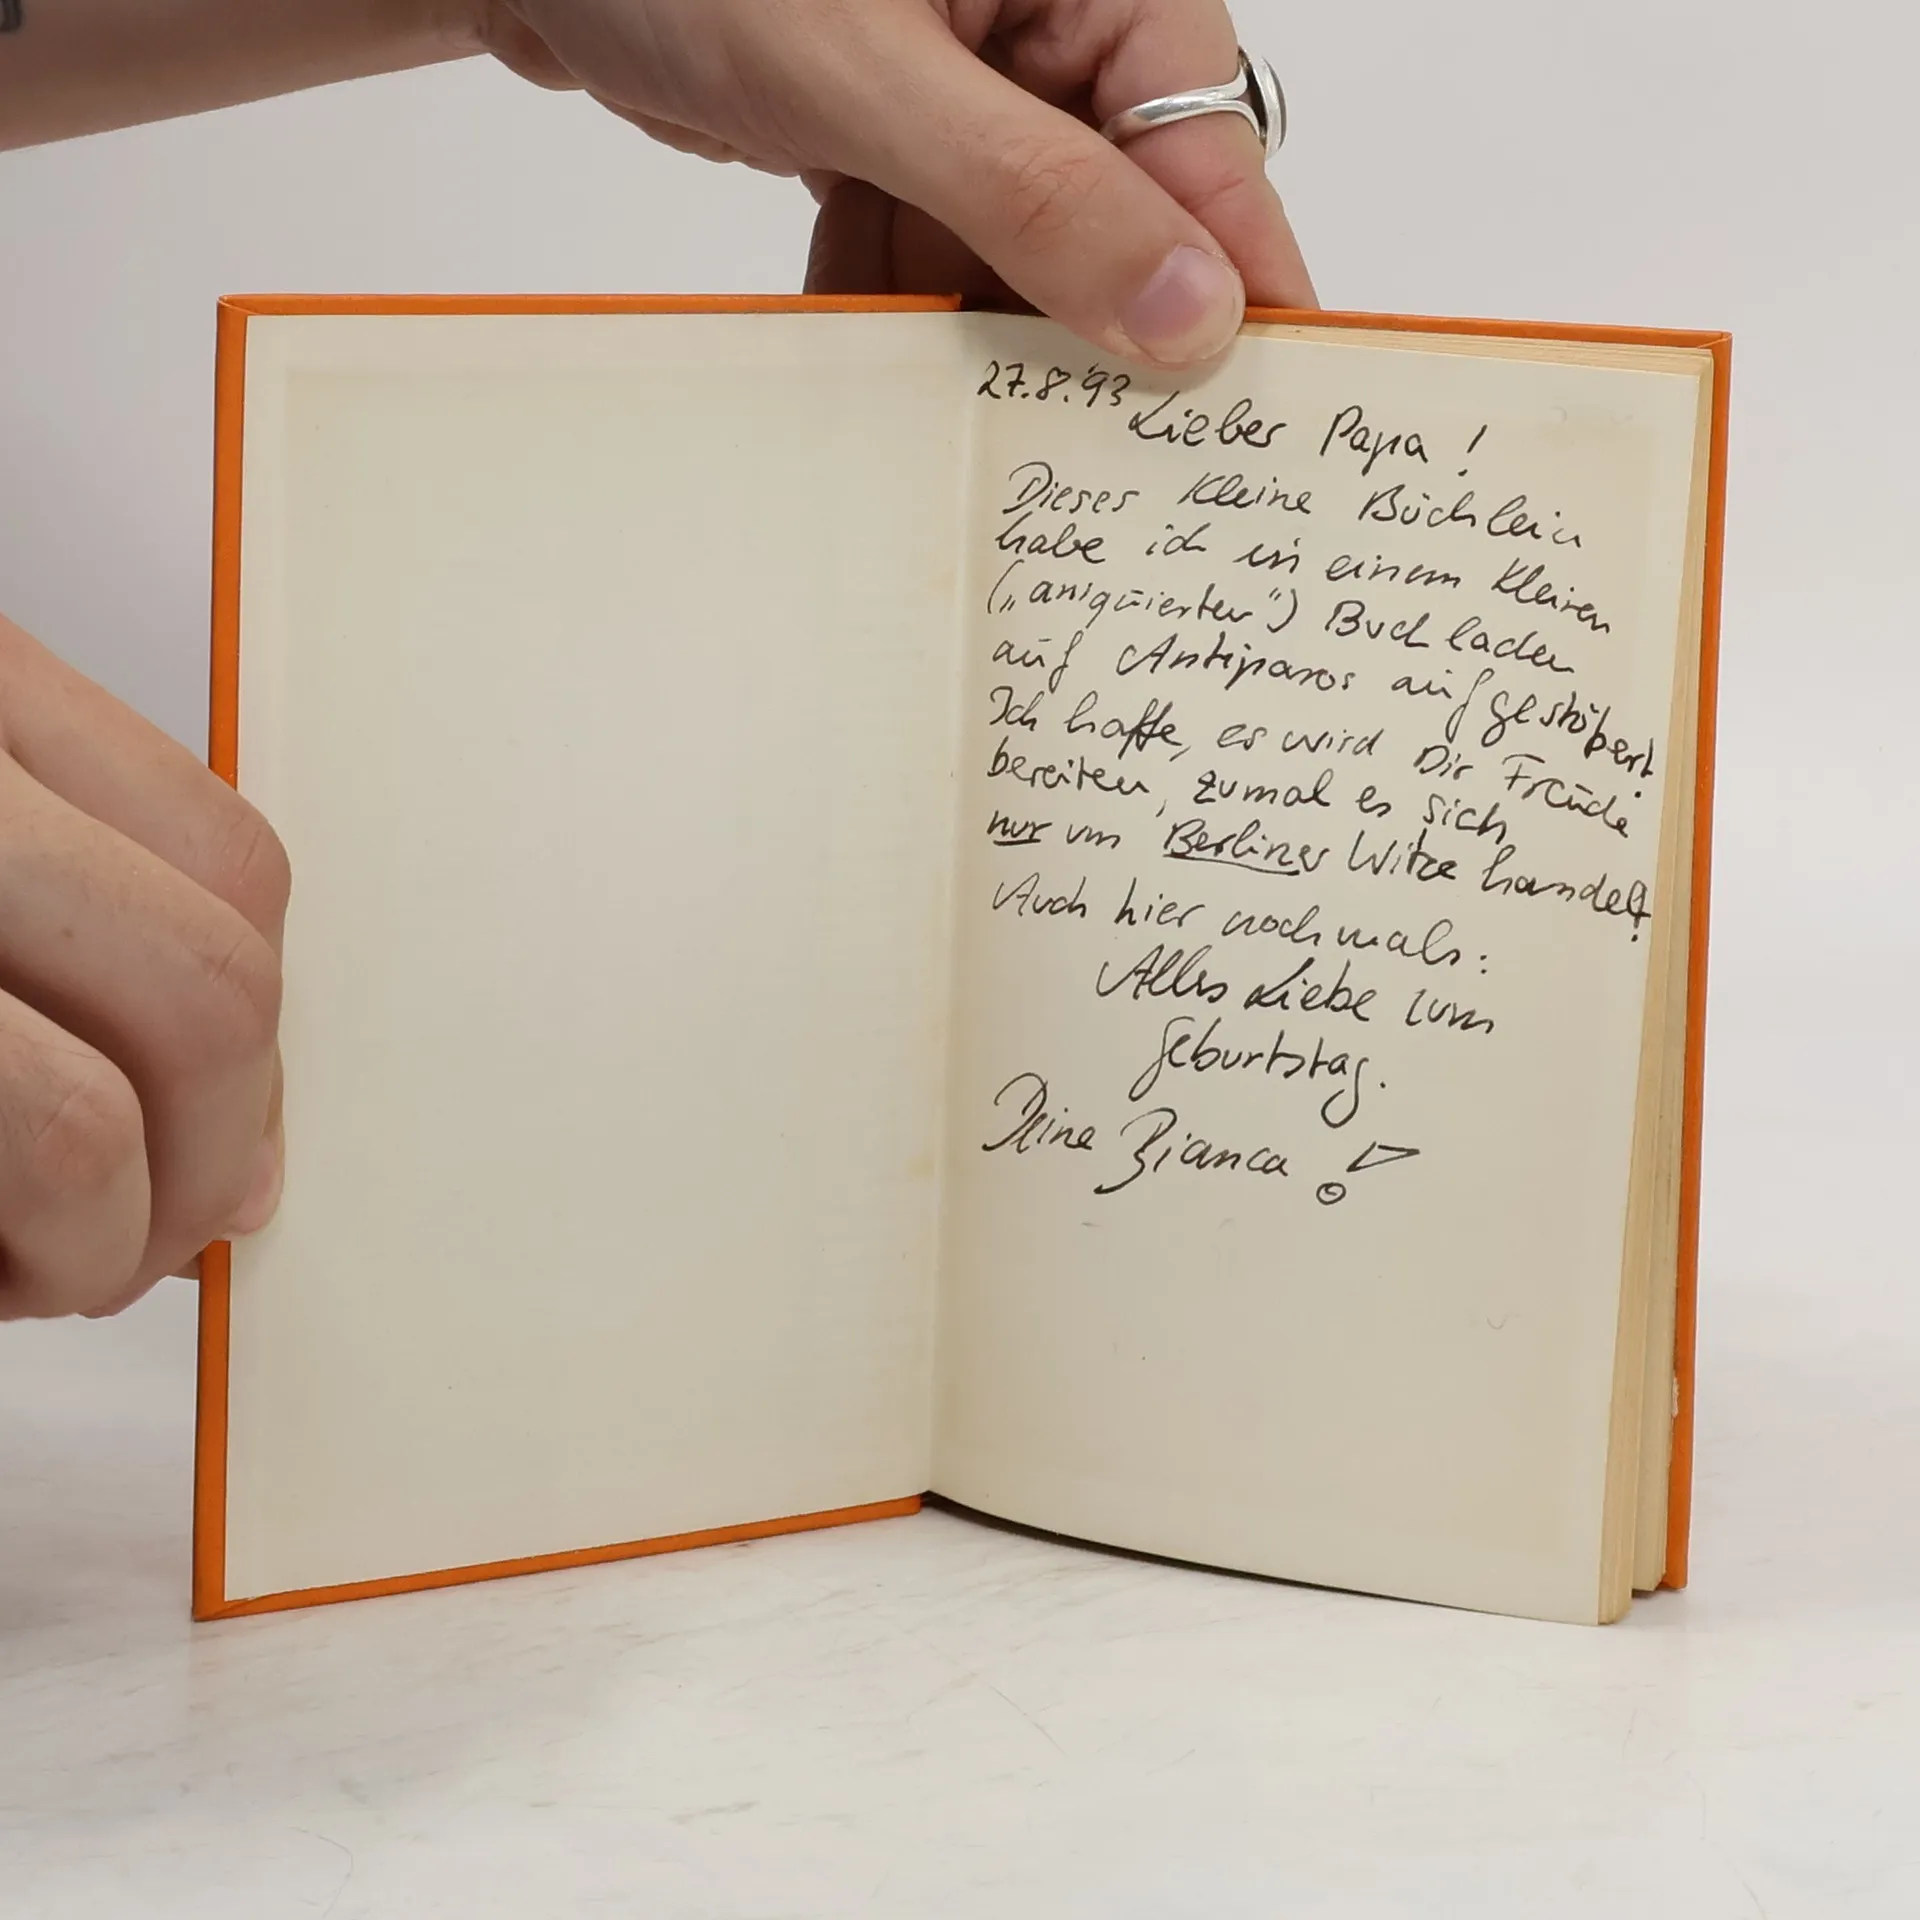 27.8.'93
Lieber Papa!
Dieses kleine Büchlein
habe ich in einem kleinen
(„aniquierten") Buchladen
auf Antiparos aufgestöbert.
Ich hoffe, es wird Dir Freude
bereiten, zumal es sich
nur um Berliner Witze handelt!
Auch hier nochmals:
Alles Liebe zum
Geburtstag.
Deine Bianca!